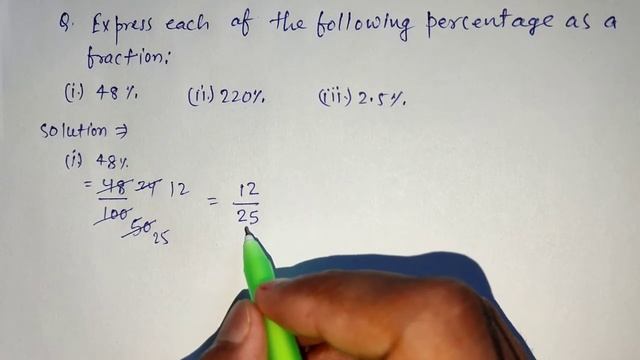 Q. Express each of the following percentage as a
fraction:
(i.) 48%. (ii.) 220%. (iii.) 2.5%.
Solution ⇒
(i) 48%.
= 48 24 12 = 12
100 50 25 25